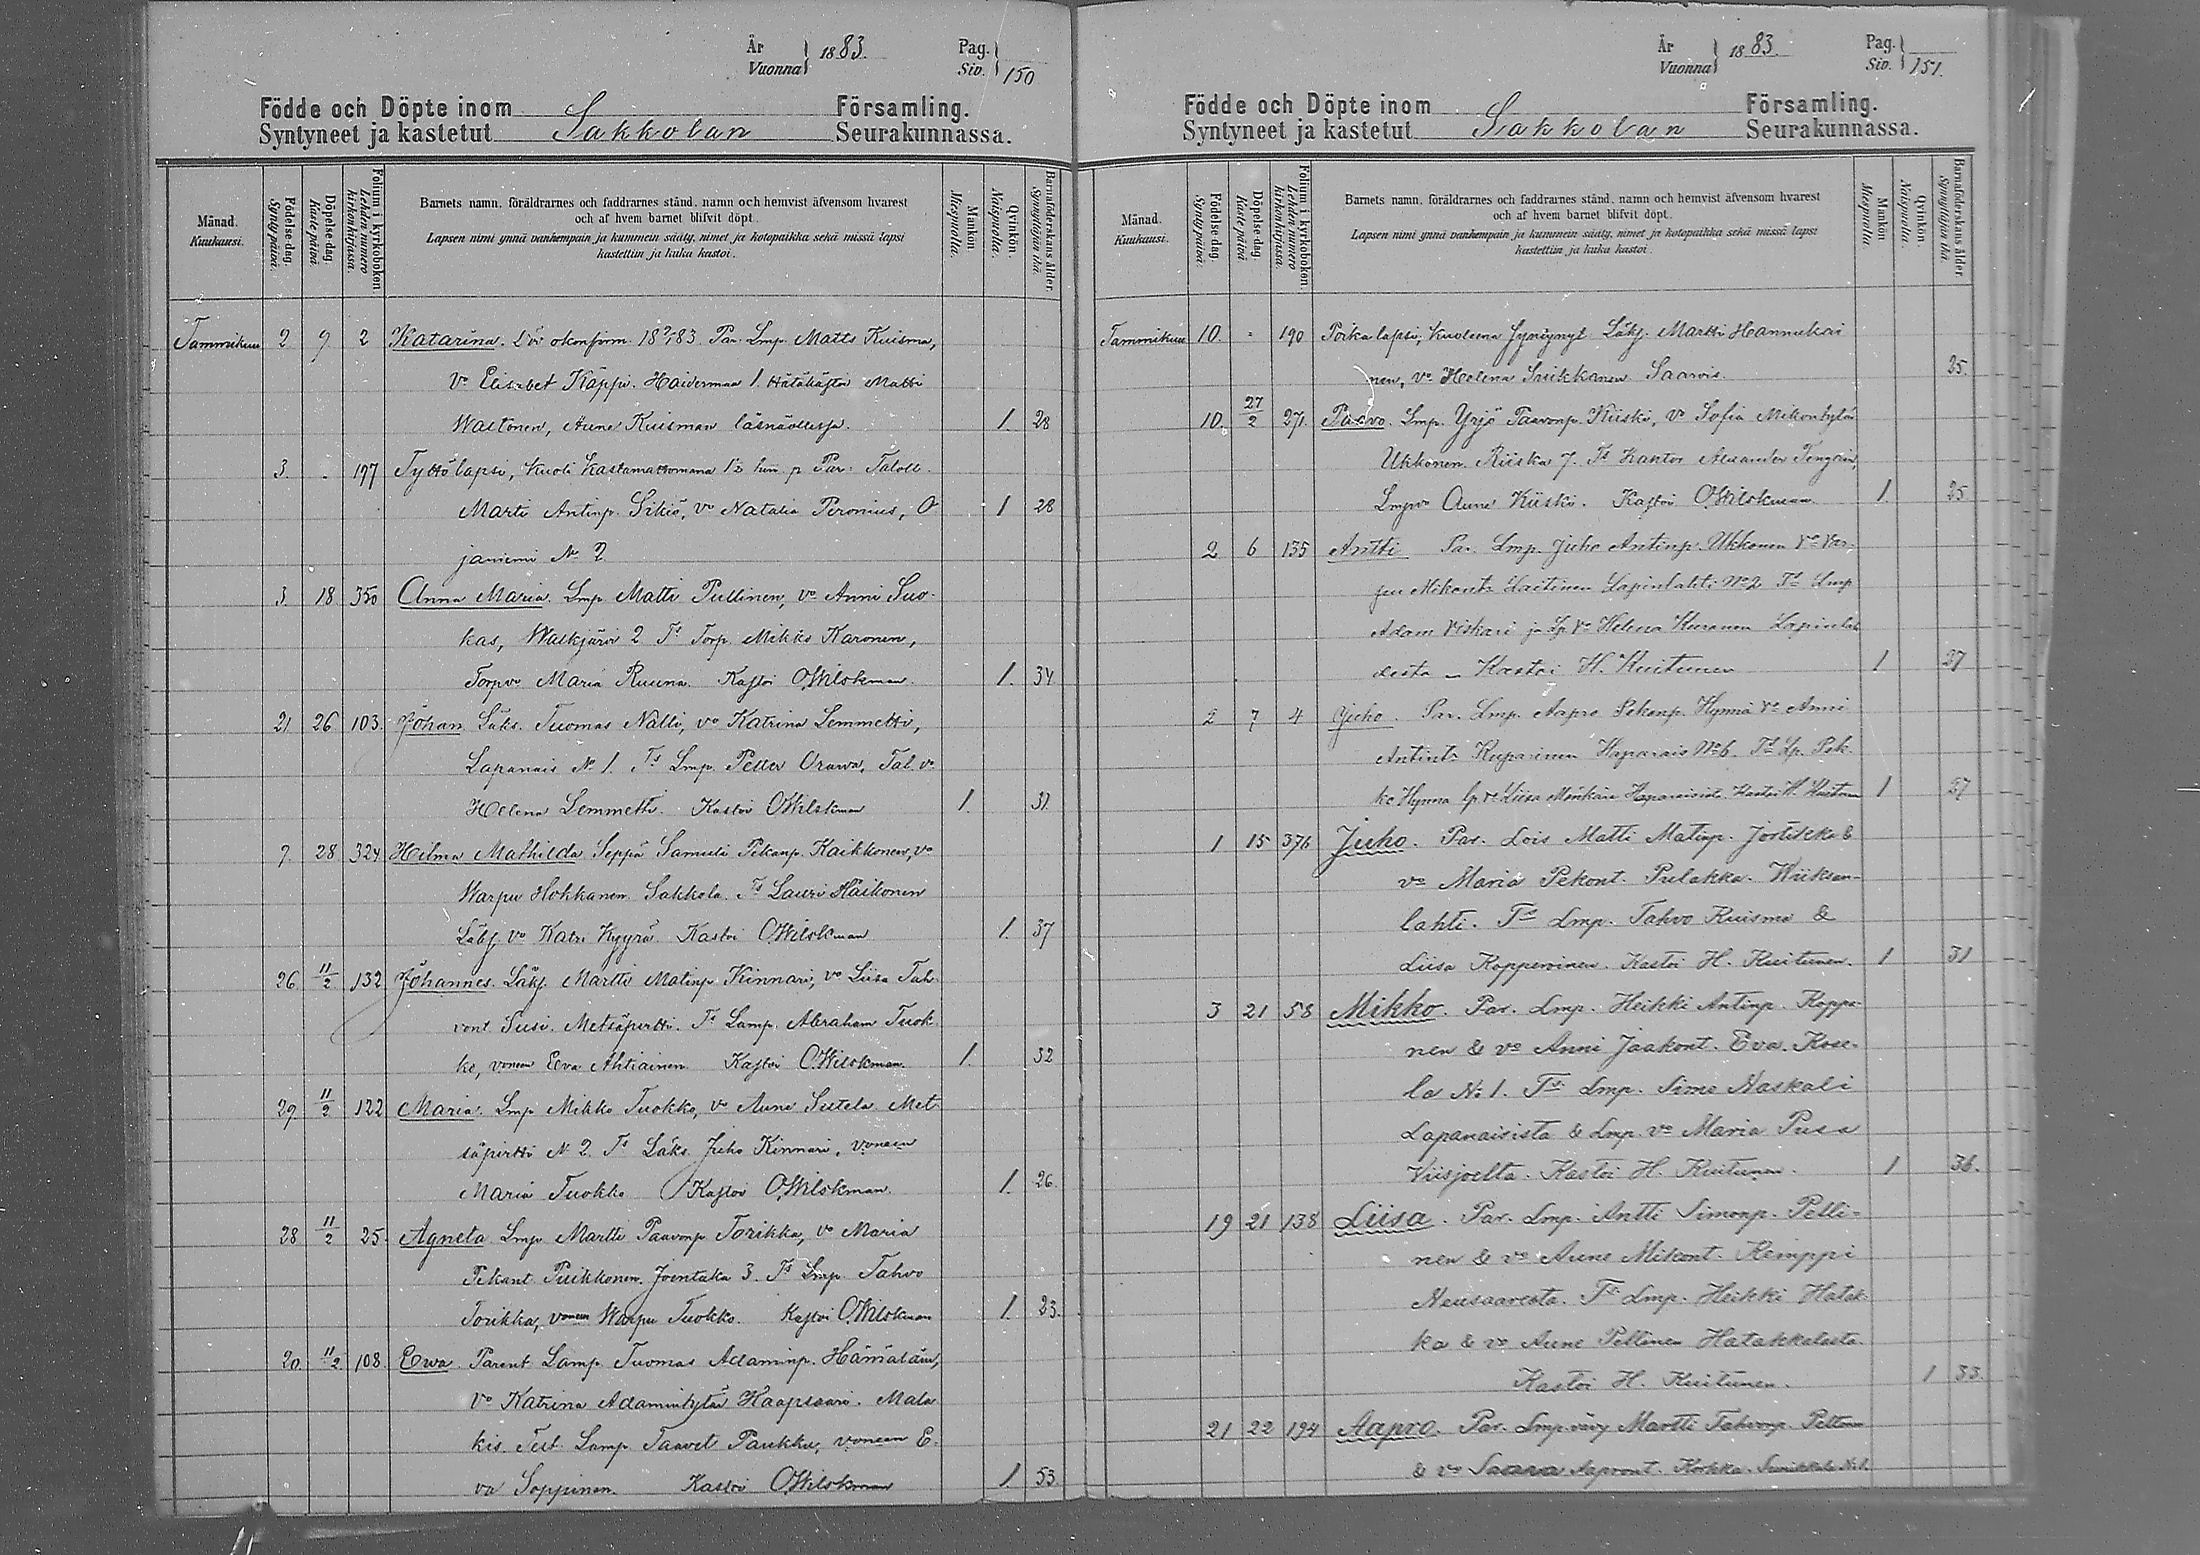 År
Vuonna 1883.
Pag.
Siv. 150
Födde och Döpte inom Församling.
Syntyneet ja kastetut Sakkolan Seurakunnassa.
Månad. Kuukausi.
Födelse-dag. Synty päivä.
Döpelse-dag. Kaste päivä.
Folium i kyrkoboken. Lehden numero kirkonkirjassa.
Barnets namn, föräldrarnes och faddrarnes stånd, namn och hemvist äfvensom hvarest
och af hvem barnet blifvit döpt.
Lapsen nimi ynnä vanhempain ja kummein sääty, nimet ja kotopaikka sekä missä lapsi
kastettiin ja kuka kastoi.
Mankön. Miespuolia.
Qvinkön. Naispuolia.
Barnaföderskans ålder. Synnyttäjän ikä.
Tammikuu 2 9 2 Katarina. Par. Lmp. Matts Kuisma,
vo Elisabet Käppi. Haiderman 1. Hätäkastoi Matti
Waltonen, Aune Kuisman läsnäollessa. 1. 28
3. - 197 Tyttölapsi, kuoli kastamattomana Par. Taloll.
Martti Antinp. Sikiö, vo Natalia Peronius, O
janiemi No 2 1 28
3. 18 350 Anna Maria. Lmp Matti Pullinen, vo Anni Suo-
kas, Walkjärvi 2 Ts Torp. Mikko Karonen,
Torpvo Maria Ruuna. Kastoi O.Wilskman. 1. 34
21 26 103. Johan. Läks. Tuomas Nalli, vo Katrina Lemmetti,
Lapanais No 1. Ts Lmp. Petter Orawa, Tal. vo
Helena Lemmetti. Kastoi O.Wilskman 1. 31.
7. 28 324 Hilma Mathilda. Seppä Samuli Pekanp. Kaikkonen, vo
Warpu Hokkanen. Sakkola. Ts Lauri Häikönen
Läks. vo Katri Kyyrä. Kastoi O.Wilskman 1. 37
26 11/2 132 Johannes. Läks. Martti Matinp. Kinnari, vo Liisa Tah-
vont. Susi. Metsäpirtti. Ts Lamp. Abraham Tuok
ko, vonsa Eeva Ahtiainen. Kastoi O.Wilskman. 1. 32
29. 11/2 122 Maria. Lmp Mikko Tuokko, vo Aune Sutela. Met-
säpirtti No 2. Ts Läks. Juho Kinnari, vonsa
Maria Tuokko Kastoi O.Wilskman. 1. 26
28 11/2 25. Agneta. Lmp Martti Paavonp Torikka, vo Maria
Pekant. Puikkonen. Joentaka 3. Ts Lmp. Tahvo
Torikka, vonsa Warpu Tuokko. Kastoi O.Wilskman 1. 23.
20. 11/2 108 Eewa. Parent. Lamp. Tuomas Adaminp. Hämäläin,
vo Katrina Adamintytär Haapsaari. Mala
kis. Test. Lamp. Taavet Paukku, vonsa E-
va Soppinen. Kastoi O.Wilskman 1. 53
År
Vuonna 1883.
Pag.
Siv. 151.
Födde och Döpte inom Församling.
Syntyneet ja kastetut Sakkolan Seurakunnassa.
Månad. Kuukausi.
Födelse-dag. Synty päivä.
Döpelse-dag. Kaste päivä.
Folium i kyrkoboken. Lehden numero kirkonkirjassa.
Barnets namn, föräldrarnes och faddrarnes stånd, namn och hemvist äfvensom hvarest
och af hvem barnet blifvit döpt.
Lapsen nimi ynnä vanhempain ja kummein sääty, nimet ja kotopaikka sekä missä lapsi
kastettiin ja kuka kastoi.
Mankön. Miespuolia.
Qvinkön. Naispuolia.
Barnaföderskans ålder. Synnyttäjän ikä.
Tammikuu 10. - 190 Poika lapsi, kuolleena synnynyt. Läks. Martti Hannukai
nen, vo Helena Suikkanen Saarois. 25.
10. 27/2 271. Paavo. Lmp. Yrjö Paavonp. Kiiski, vo Sofia Mikontytär
Ukkonen. Riiska 7. Ts Kantor Alexander Tengén,
Lmpvo Aune Kiiski. Kastoi O.Wilskman 1. 25
2 6 135 Antti Par. Lmp. Juho Antinp. Ukkonen vo Var-
pu Mikontr Laitinen Lapinlahti No 2 Ts Lmp
Adam Viskari ja Lp vo Helena Kuranen Lapinlah
desta - Kastoi H. Kuitunen 1 27
2 7 4 Juho. Par. Lmp. Aapro Pekanp. Hynnä vo Anni
Antintr Kuparinen Haparais No 6. Ts Lp. Pek-
ko Hynna lp vo Liisa Haparaisista. Kastoi H. Kuitunen 1 27
1 15 376 Juho. Par. Lois Matti Matinp. Jortikka &
vo Maria Pekont. Pulakka. Wiiksan-
lahti. Ts Lmp. Tahvo Kuisma &
Liisa Kopperoinen. Kastoi H. Kuitunen. 1 31
3 21 58 Mikko. Par. Lmp. Heikki Antinp. Koppa-
nen & vo Anni Jaakont. Eva. Kose-
la No 1. Ts Lmp. Simo Naskali
Lapanaisista & Lmp. vo Maria Pusa
Viisjoelta. Kastoi H. Kuitunen. 1 36.
19 21 138 Liisa. Par. Lmp. Antti Simonp. Pelli-
nen & vo Aune Mikont. Kemppi
Neusaaresta. Ts Lmp. Heikki Hatak-
ka & vo Aune Pellinen Hatakkalasta.
Kastoi H. Kuitunen. 1 33.
21 22 194 Aapro. Par. Lmp. vävy Martti Tahvonp. Peltonen
& vo Saara Aapront. Kokka.